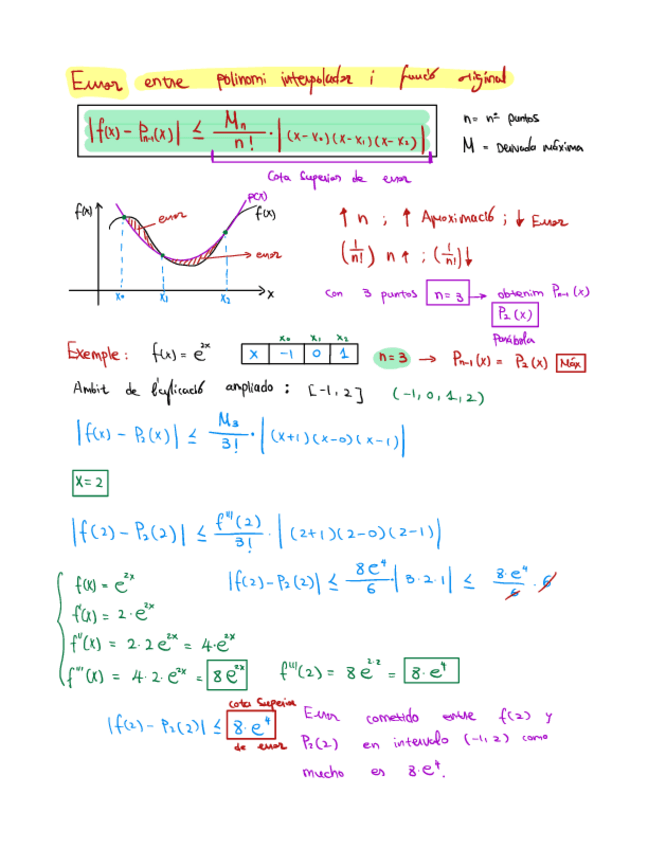 Error entre polinomi interpolador i funció original
|f(x) - Pn-1(x)| ≤ Mn/n! · |(x-x₀)(x-x₁)(x-x₂)|
n = nº puntos
M = Derivada máxima
Cota Superior de error
f(x)
error
P(x)
f(x)
error
x₀ x₁ x₂ x
↑ n ; ↑ Aproximació ; ↓ Error
(1/n!) n↑ ; (1/n!)↓
con 3 puntos n=3 → obtenim Pn-1(x)
P₂(x)
parábola
x₀ x₁ x₂
Exemple: f(x) = e^2x x -1 0 1 n=3 → Pn-1(x) = P₂(x) Máx
Ambit de l'aplicació ampliado : [-1, 2] (-1, 0, 1, 2)
|f(x) - P₂(x)| ≤ M₃/3! · |(x+1)(x-0)(x-1)|
x=2
|f(2) - P₂(2)| ≤ f'''(2)/3! · |(2+1)(2-0)(2-1)|
f(x) = e^2x
|f(2) - P₂(2)| ≤ 8e⁴/6 |3·2·1| ≤ 8·e⁴/6 · 6
f'(x) = 2·e^2x
f''(x) = 2·2e^2x = 4·e^2x
f'''(x) = 4·2·e^2x = 8e^2x f'''(2) = 8e^2·2 = 8·e⁴
cota Superior
|f(2) - P₂(2)| ≤ 8·e⁴
de error
Error cometido entre f(2) y
P₂(2) en intervalo (-1, 2) como
mucho es 8·e⁴.